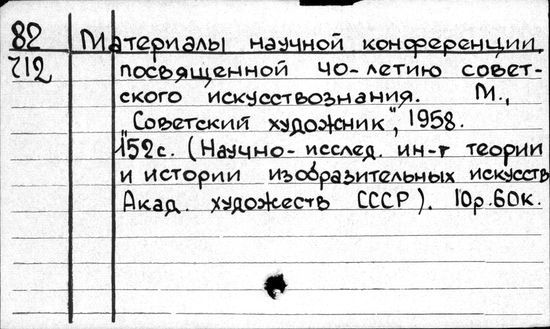 82 Материалы научной конференции,
712 посвященной 40-летию совет-
ского искусствознания. М.,
"Советский художник", 1958.
152с. (Научно-исслед. ин-т теории
и истории изобразительных искусств
Акад. художеств СССР). 10р.60к.